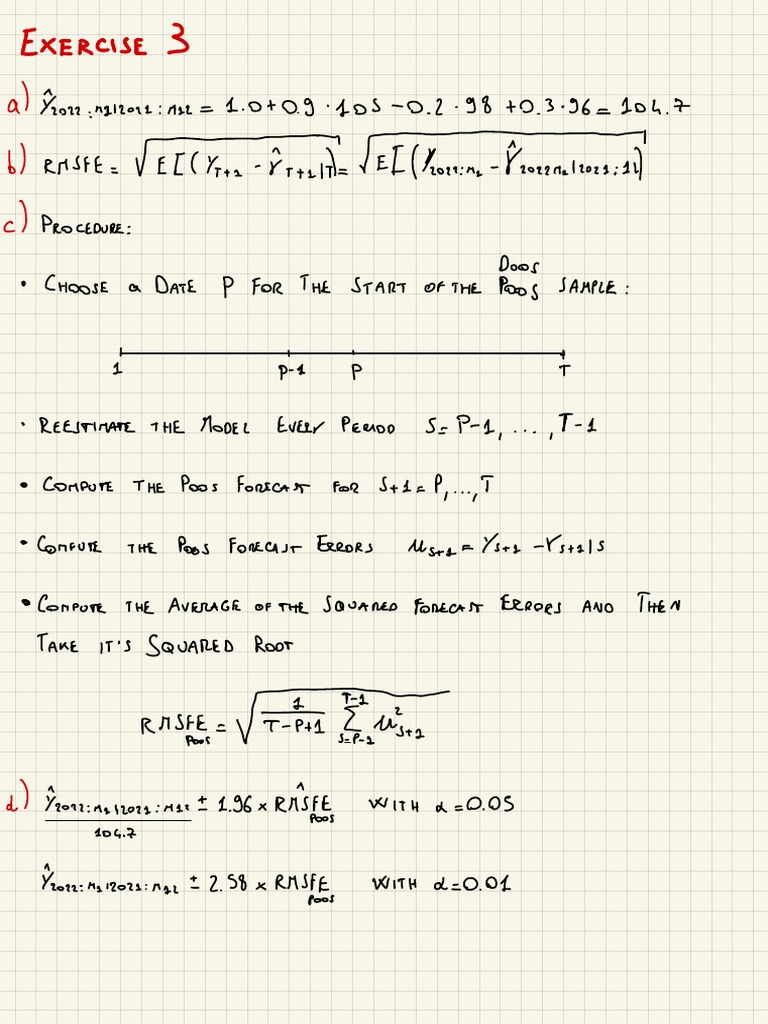 EXERCISE 3
a) Ŷ2022:M1|2021:M12 = 1.0+0.9·105-0.2·98+0.3·96=104.7
b) RMSFE = √E[(Y_T+1 - Ŷ_T+1|T)] = √E[(Y2022:M1 - Ŷ2022M1|2021:12)]
c) PROCEDURE:
• CHOOSE a DATE P FOR THE START OF THE POOS SAMPLE:
1 P-1 P T
• REESTIMATE THE MODEL EVERY PERIOD S=P-1,...,T-1
• COMPUTE THE POOS FORECAST FOR S+1=P,...,T
• COMPUTE THE POOS FORECAST ERRORS u_S+1 = Y_S+1 - Y_S+1|S
• COMPUTE THE AVERAGE OF THE SQUARED FORECAST ERRORS AND THEN
TAKE IT'S SQUARED ROOT
RMSFE_POOS = √ 1/(T-P+1) Σ_{S=P-1}^{T-1} u²_S+1
d) Ŷ2022:M1|2021:M12 ± 1.96 × RMŜFE_POOS WITH α=0.05
104.7
Ŷ2022:M1|2021:M12 ± 2.58 × RMSFE_POOS WITH α=0.01